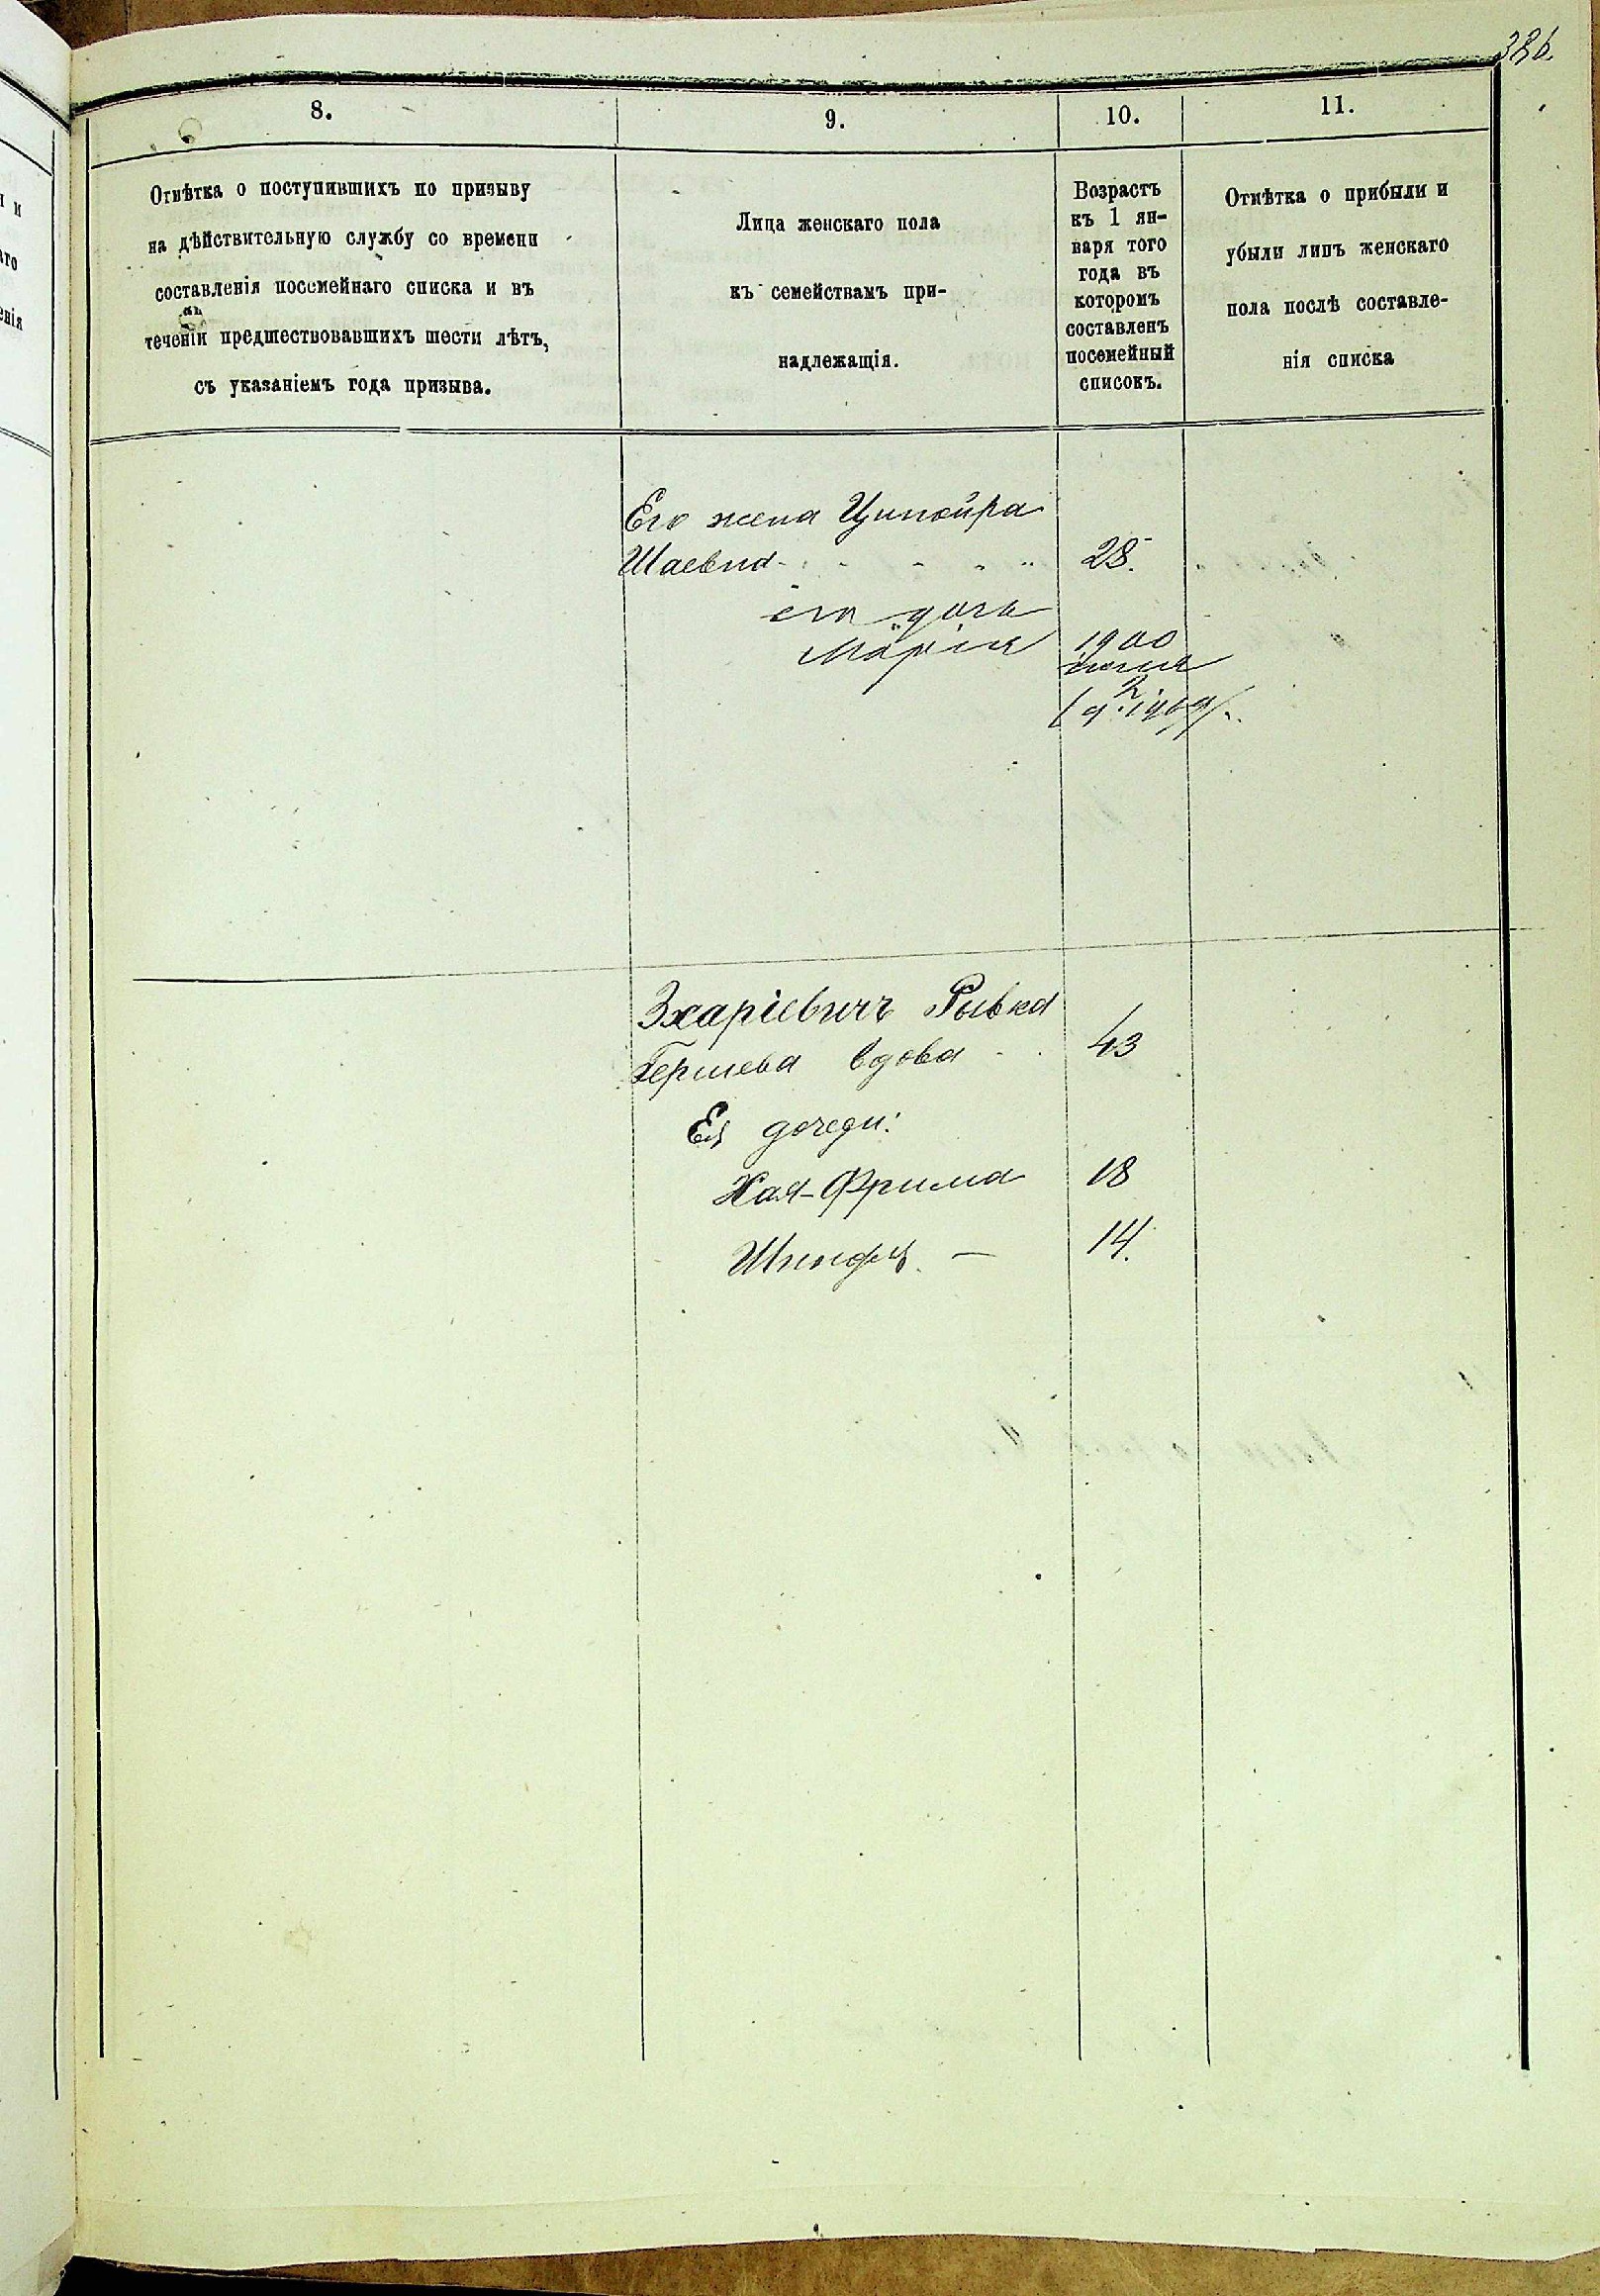 386.
8.
9.
10.
11.
Отмѣтка о поступившихъ по призыву
на дѣйствительную службу со времени
составленія посемейнаго списка и въ
теченіи предшествовавшихъ шести лѣтъ,
съ указаніемъ года призыва.
Лица женскаго пола
къ семействамъ при-
надлежащія.
Возрастъ
къ 1 ян-
варя того
года въ
которомъ
составленъ
посемейный
списокъ.
Отмѣтка о прибыли и
убыли лицъ женскаго
пола послѣ составле-
нія списка
Его жена Ципойра
Шаевна 28.
его дочь
Марія 1900
іюня
2
Зхаріевичъ Рывка
Гершева вдова 43
Ея дочери:
Хая-Фрима 18
14.